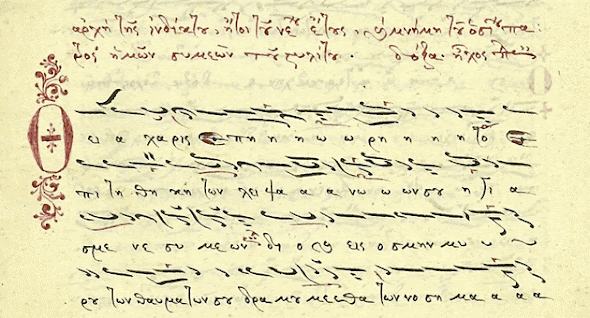 ἀρχὴ τῆς ἰνδίκτου, ἤτοι τοῦ νέου ἔτους, καὶ μνήμη τοῦ ὁσίου πα
τρὸς ἡμῶν συμεὼν τοῦ στυλίτου. δόξα. ἦχος
Θ ει α χαρις α πη η η ω ω ρη η η η το ε
πι τη θη κη των λει ψα α α νω ω ων σου η γι α
σμε νε συ με ων δι ο και εις ο σμην μυ υ υ
ρου των θαυμα των σου δρα μου με ε θα των νο ση μα α α α